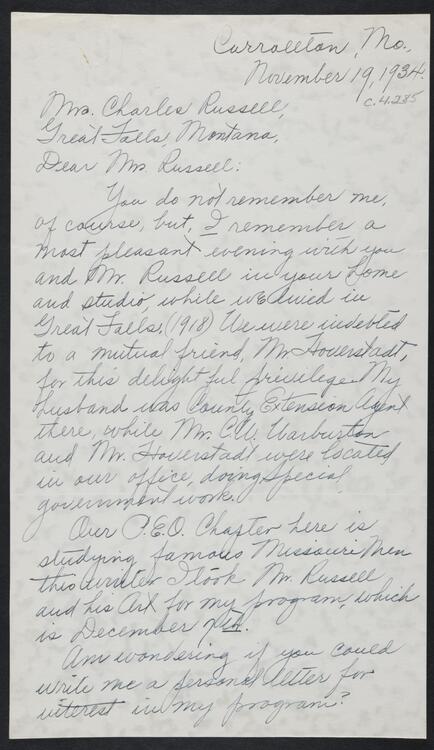 Carrollton, Mo.,
November 19, 1934.
C.4.285
Mrs. Charles Russell,
Great Falls, Montana,
Dear Mrs. Russell:
You do not remember me,
of course, but, I remember a
most pleasant evening with you
and Mr. Russell in your home
and studio, while we lived in
Great Falls. (1918) We were indebted
to a mutual friend, Mr Hoverstadt,
for this delightful privilege. My
husband was County Extension Agent
there, while Mr. C.W. Warburton
and Mr. Hoverstadt were located
in our office, doing special
government work.
Our P.E.O. Chapter here is
studying famous Missouri Men
this winter I took Mr. Russell
and his Art for my program, which
is December 7th.
Am wondering if you could
write me a personal letter for
interest in my program?